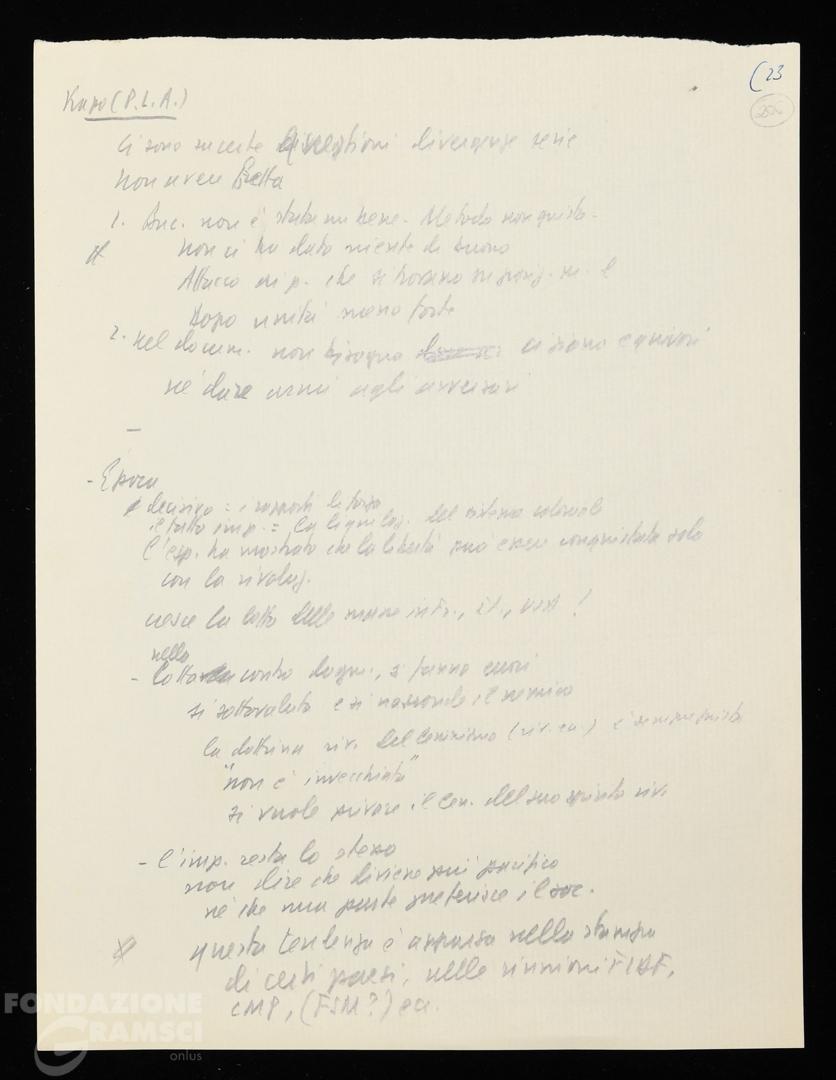 (23
Kapo (P.L.A.)
Ci sono recente divergenze serie
non aveva fretta
1. Buc. non è stata un bene. Metodo non giusto.
non ci ha dato niente di buono
Attacco ai p. che si trovano
Dopo unità meno forte
2. nel docum. non bisogna ci siano equivoci
né dare armi agli avversari
–
- Epoca
decisivo = i rapporti di forza
il fatto imp. = la liquidaz. del sistema coloniale
l'esp. ha mostrato che la libertà può essere conquistata solo
con la rivoluz.
cresce la lotta delle masse in Fr., It., !
nella
- lotta contro dogm., si fanno errori
si sottovaluta e si nasconde il nemico
la dottrina riv. del leninismo è sempre giusta
"non è invecchiata"
si vuole privare il len. del suo spirito riv.
- l'imp. resta lo stesso
non dire che diviene più pacifico
né che una parte preferisce il soc.
questa tendenza è apparsa nella stampa
di certi paesi, nelle riunioni
CMP, (FSM?) ecc.
FONDAZIONE
GRAMSCI
onlus